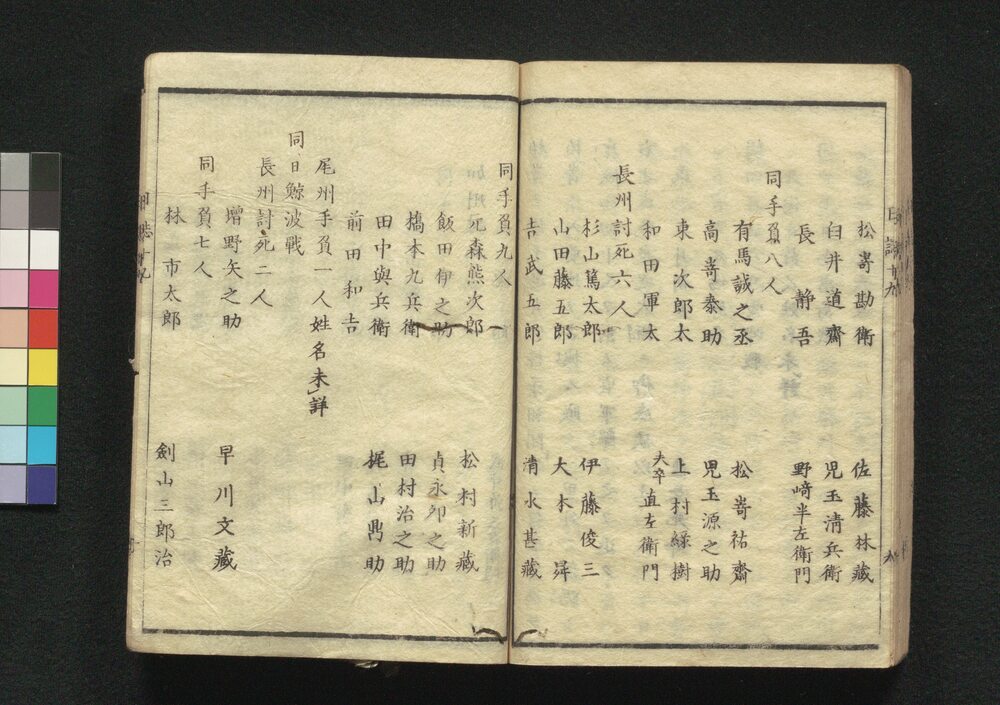 日誌十九
九
松嵜勘衛　佐藤林藏
臼井道齋　児玉淸兵衛
長静吾　野﨑半左衛門
同手負八人
有馬誠之丞　松嵜祐齋
高嵜泰助　児玉源之助
東次郎太　上村綠樹
和田軍太　夫卒直左衛門
長州討死六人
杉山篤太郎　伊藤俊三
山田藤五郎　大木舜
吉武五一郎　清水甚藏
同手負九人
森熊次郎　松村新藏
飯田伊之助　貞永卯之助
橋本九兵衛　田村治之助
田中與兵衛　梶山鼎助
前田和吉
尾州手負一人姓名未詳
同日鯨波戦
長州討死二人
増野矢之助　早川文藏
同手負七人
林市太郎　劍山三郎治